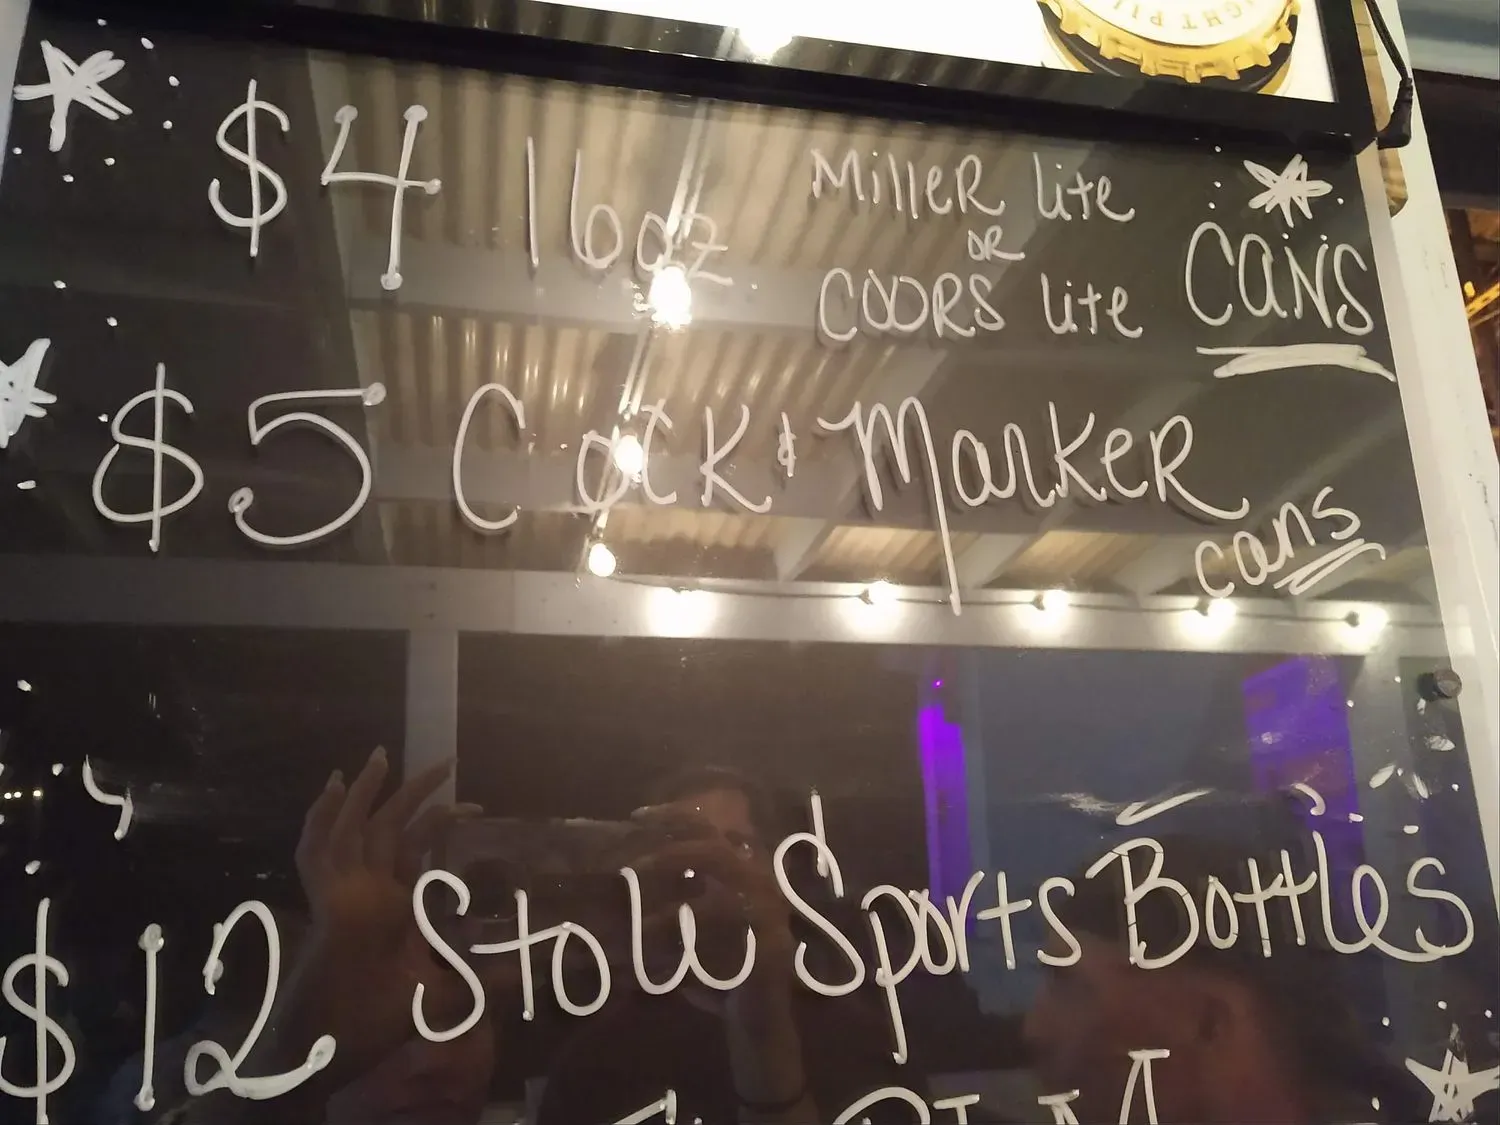 IGHT PIL
$4 16oz. MilleR lite
OR
COORS lite CANS
$5 Cock & MarkeR
cans
$12 Stoli Sports Bottles